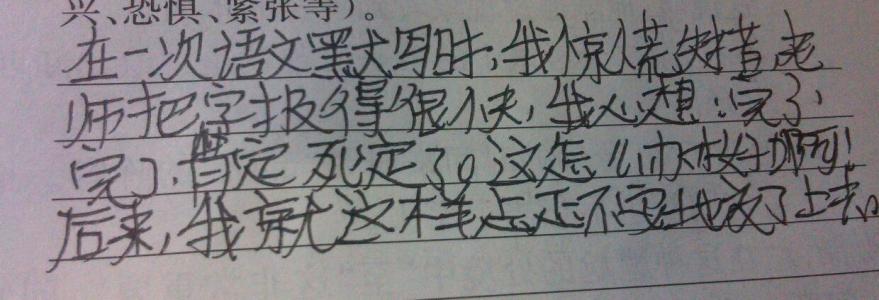 兴、恐惧、紧张等)。
在一次语文默写时,我惊慌失措老
师把字报得很快,我心想:完了,
完了,肯定死定了。这怎么办才好啊!
后来,我就这样忐忑不安地交了上去。